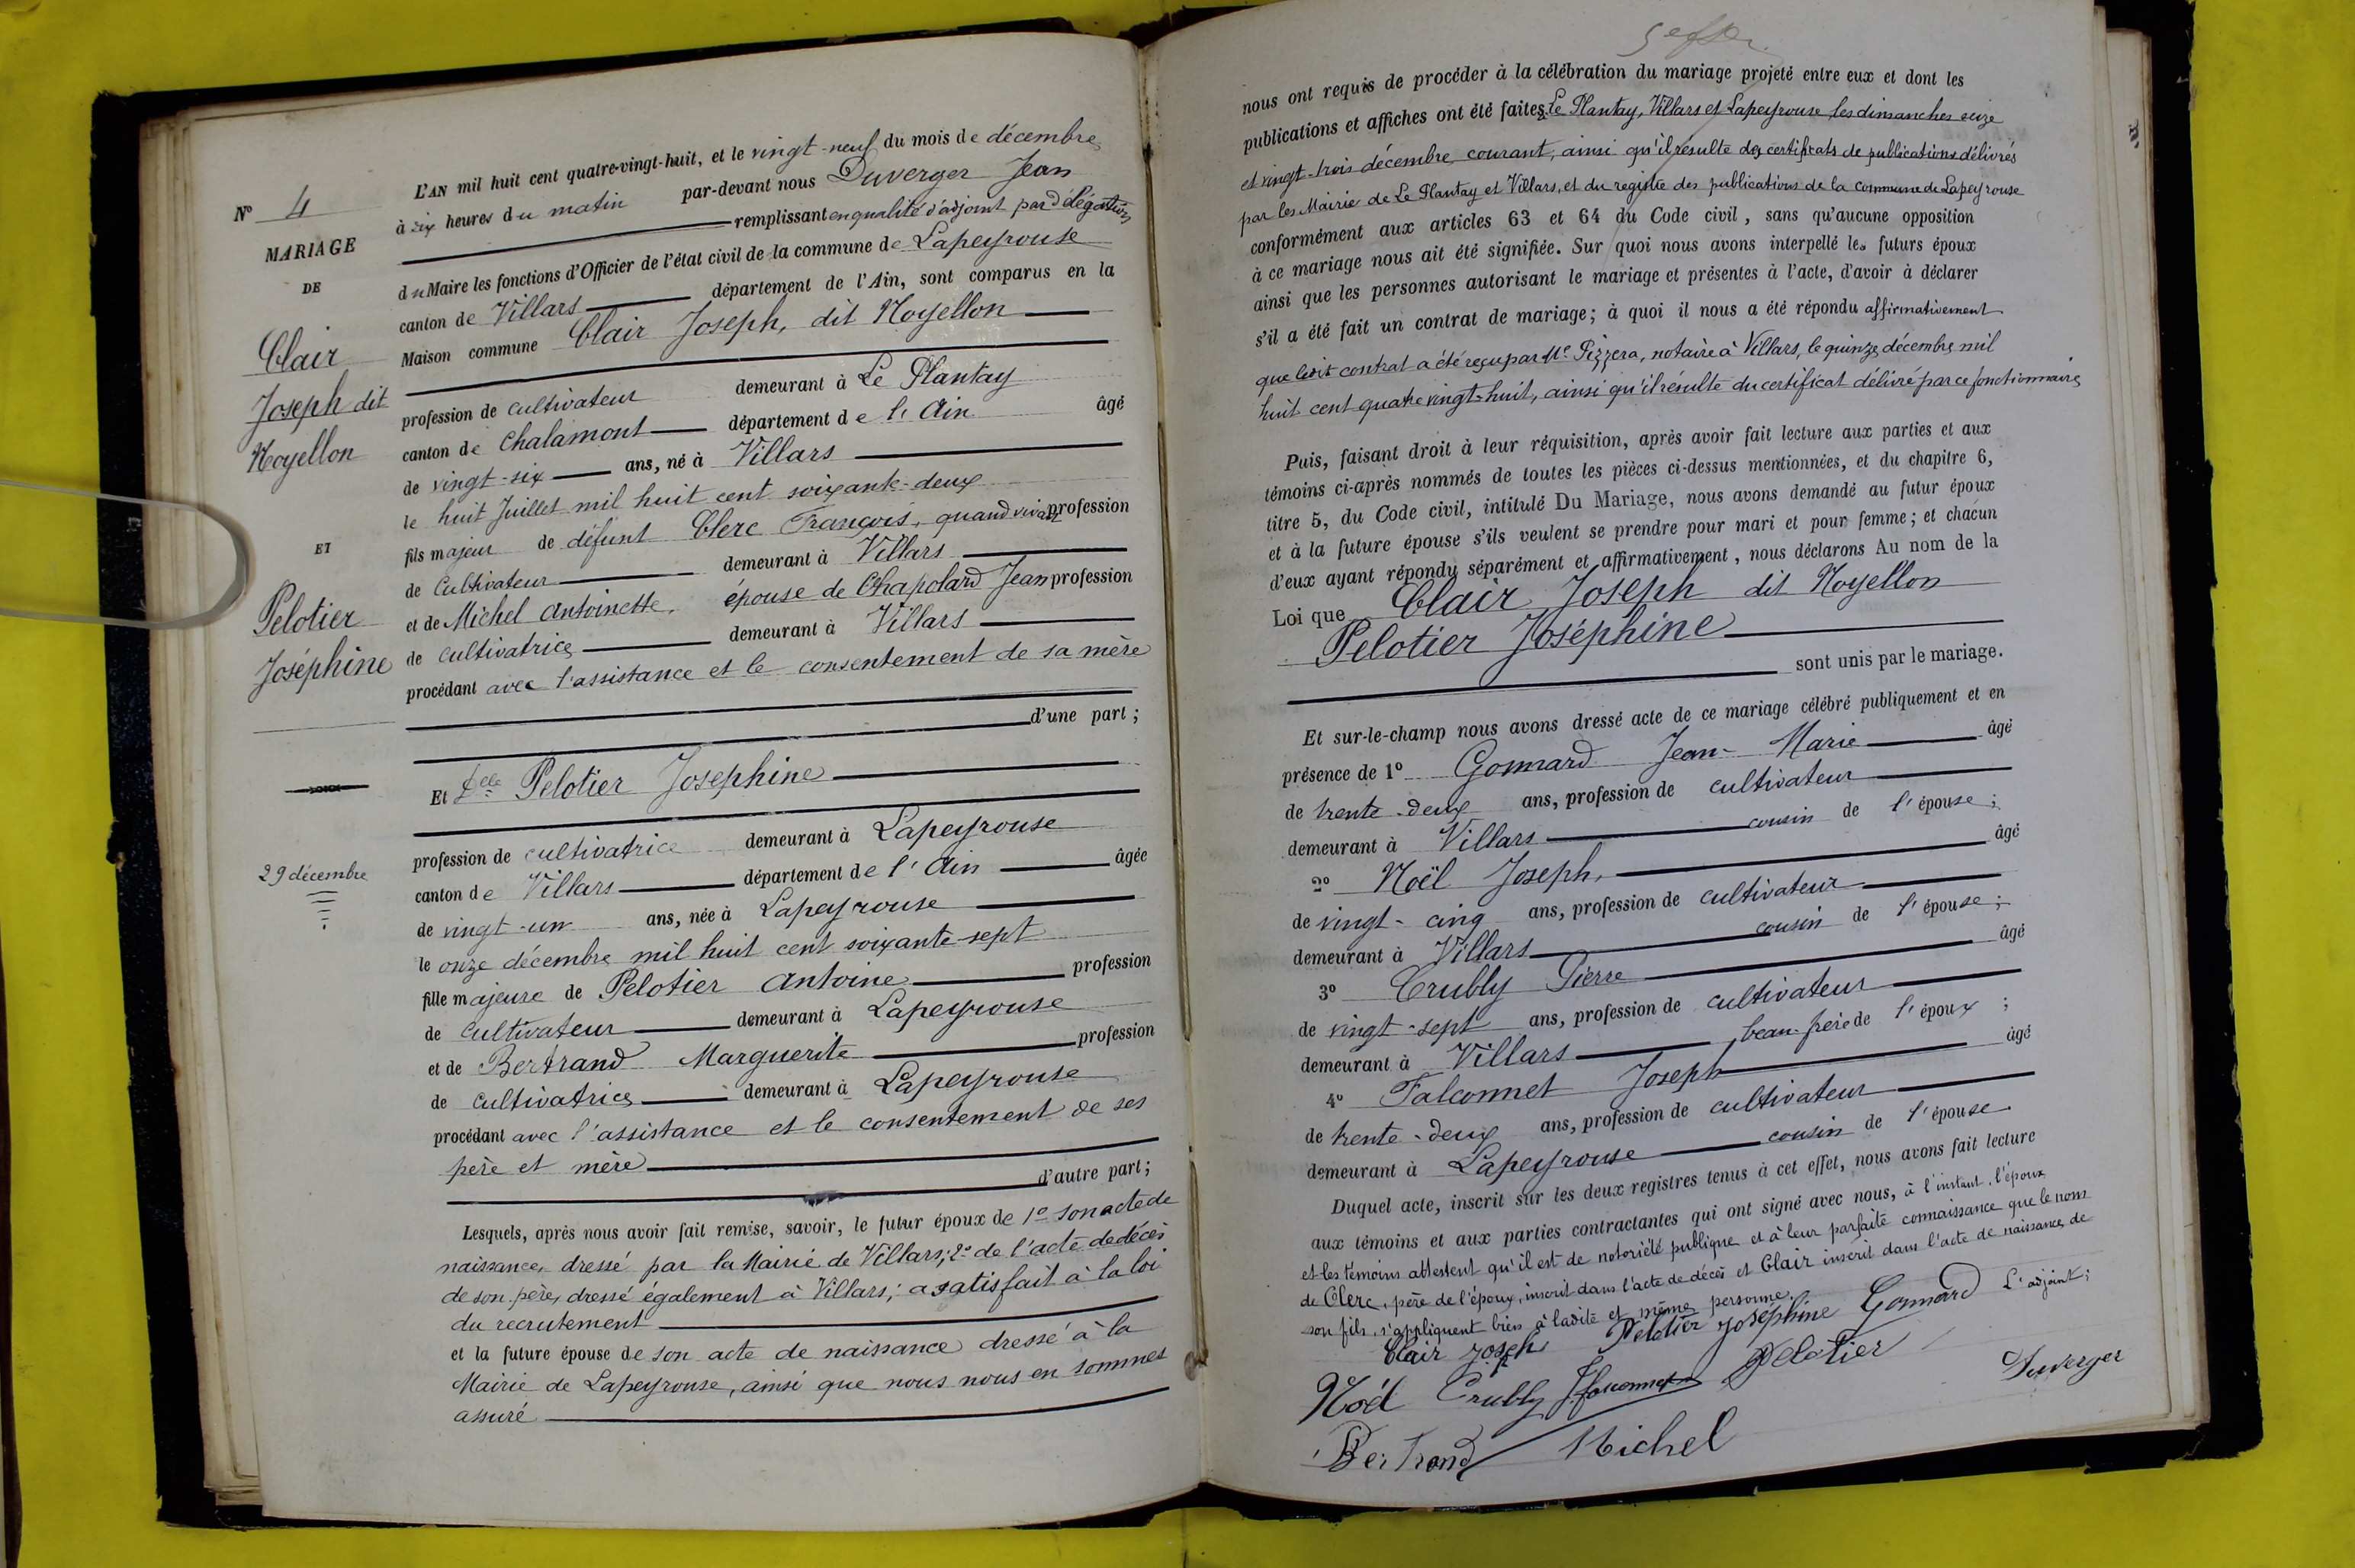 N° 4
MARIAGE
DE
Clair
Joseph dit
Noyellon
ET
Pelotier
Joséphine
29 décembre
L'AN mil huit cent quatre-vingt-huit, et le vingt-neuf du mois de décembre
à six heures du matin par-devant nous Duverger Jean
remplissant en qualité d'adjoint par délégation
du Maire les fonctions d'Officier de l'état civil de la commune de Lapeyrouse
canton de Villars département de l'Ain, sont comparus en la
Maison commune Clair Joseph, dit Noyellon
profession de cultivateur demeurant à Le Plantay
canton de Chalamont département de l'Ain âgé
de vingt-six ans, né à Villars
le huit Juillet mil huit cent soixante-deux
fils majeur de défunt Clerc François, quand vivait profession
de Cultivateur demeurant à Villars
et de Michel Antoinette, épouse de Chapolard Jean profession
de cultivatrice demeurant à Villars
procédant avec l'assistance et le consentement de sa mère
d'une part;
Et Delle Pelotier Josephine
profession de cultivatrice demeurant à Lapeyrouse
canton de Villars département de l'Ain âgée
de vingt-un ans, née à Lapeyrouse
le onze décembre mil huit cent soixante-sept
fille majeure de Pelotier Antoine profession
de cultivateur demeurant à Lapeyrouse
et de Bertrand Marguerite profession
de cultivatrice demeurant à Lapeyrouse
procédant avec l'assistance et le consentement de ses
père et mère
d'autre part;
Lesquels, après nous avoir fait remise, savoir, le futur époux de 1° son acte de
naissance, dressé par la Mairie de Villars; 2° de l'acte de décès
de son père, dressé également à Villars; a satisfait à la loi
du recrutement
et la future épouse de son acte de naissance dressé à la
Mairie de Lapeyrouse, ainsi que nous nous en sommes
assuré
nous ont requis de procéder à la célébration du mariage projeté entre eux et dont les
publications et affiches ont été faites Le Plantay, Villars et Lapeyrouse les dimanches seize
et vingt-trois décembre courant, ainsi qu'il résulte des certificats de publications délivrés
par les Mairie de Le Plantay et Villars, et du registre des publications de la commune de Lapeyrouse
conformément aux articles 63 et 64 du Code civil, sans qu'aucune opposition
à ce mariage nous ait été signifiée. Sur quoi nous avons interpellé les futurs époux
ainsi que les personnes autorisant le mariage et présentes à l'acte, d'avoir à déclarer
s'il a été fait un contrat de mariage; à quoi il nous a été répondu affirmativement
que ledit contrat a été reçu par Me Pizzera, notaire à Villars, le quinze décembre mil
huit cent quatre vingt-huit, ainsi qu'il résulte du certificat délivré par ce fonctionnaire
Puis, faisant droit à leur réquisition, après avoir fait lecture aux parties et aux
témoins ci-après nommés de toutes les pièces ci-dessus mentionnées, et du chapitre 6,
titre 5, du Code civil, intitulé Du Mariage, nous avons demandé au futur époux
et à la future épouse s'ils veulent se prendre pour mari et pour femme; et chacun
d'eux ayant répondu séparément et affirmativement, nous déclarons Au nom de la
Loi que Clair Joseph dit Noyellon
Pelotier Joséphine
sont unis par le mariage.
Et sur-le-champ nous avons dressé acte de ce mariage célébré publiquement et en
présence de 1° Gonnard Jean-Marie âgé
de trente-deux ans, profession de cultivateur
demeurant à Villars cousin de l'épouse;
2° Noël Joseph, âgé
de vingt-cinq ans, profession de cultivateur
demeurant à Villars cousin de l'épouse;
3° Crubly Pierre âgé
de vingt-sept ans, profession de cultivateur
demeurant à Villars beau-frère de l'époux;
4° Falconnet Joseph âgé
de trente-deux ans, profession de cultivateur
demeurant à Lapeyrouse cousin de l'épouse
Duquel acte, inscrit sur les deux registres tenus à cet effet, nous avons fait lecture
aux témoins et aux parties contractantes qui ont signé avec nous, à l'instant, l'époux
et les témoins attestent qu'il est de notoriété publique et à leur parfaite connaissance que le nom
de Clerc, père de l'époux, inscrit dans l'acte de décès et Clair inscrit dans l'acte de naissance de
son fils, s'appliquent bien à ladite et même personne.
Clair Joseph Pelotier Joséphine Gonnard L'adjoint;
Noël Crubly J falconnet Pelotier Duverger
Bertrand Michel